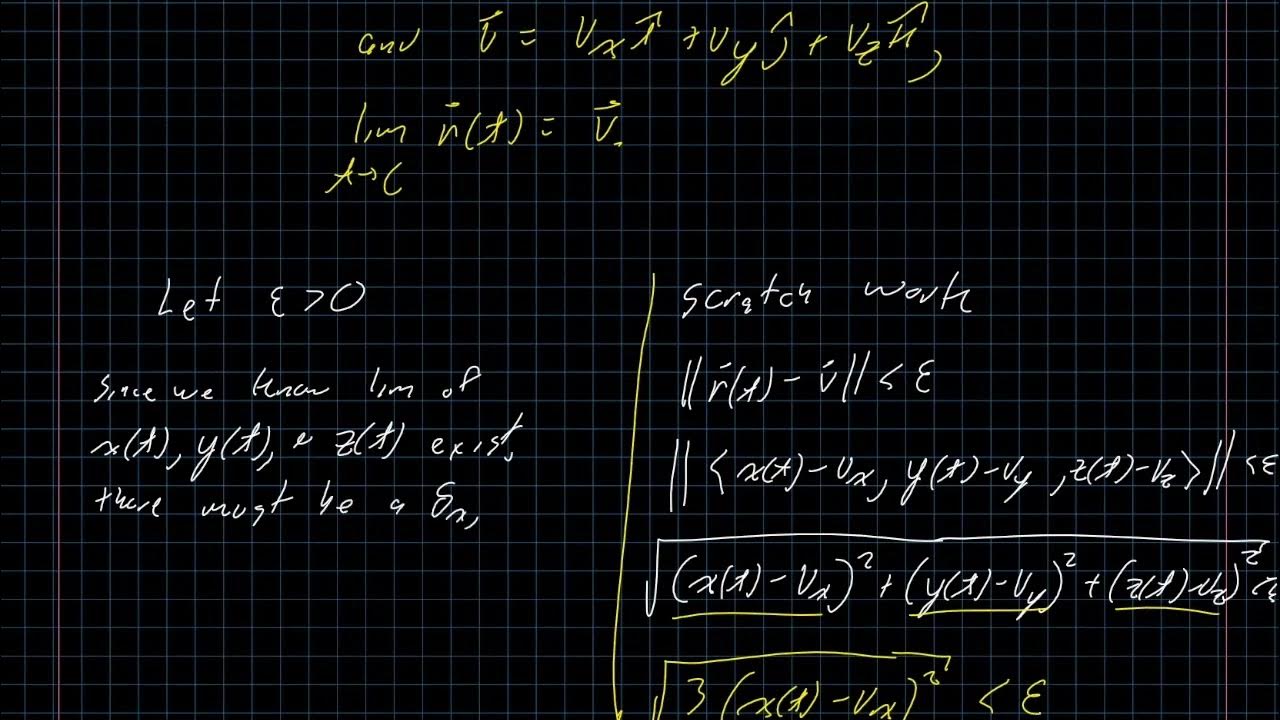 and v⃗ = vₓî + v_y ĵ + v_z k̂,
lim r⃗(t) = v⃗.
t→c
Let ε > 0
since we know lim of
x(t), y(t), & z(t) exist,
there must be a δₓ,
scratch work
||r⃗(t) - v⃗|| < ε
||⟨x(t) - vₓ, y(t) - v_y, z(t) - v_z⟩|| < ε
√((x(t) - vₓ)² + (y(t) - v_y)² + (z(t) - v_z)²) < ε
√(3(x(t) - vₓ)²) < ε